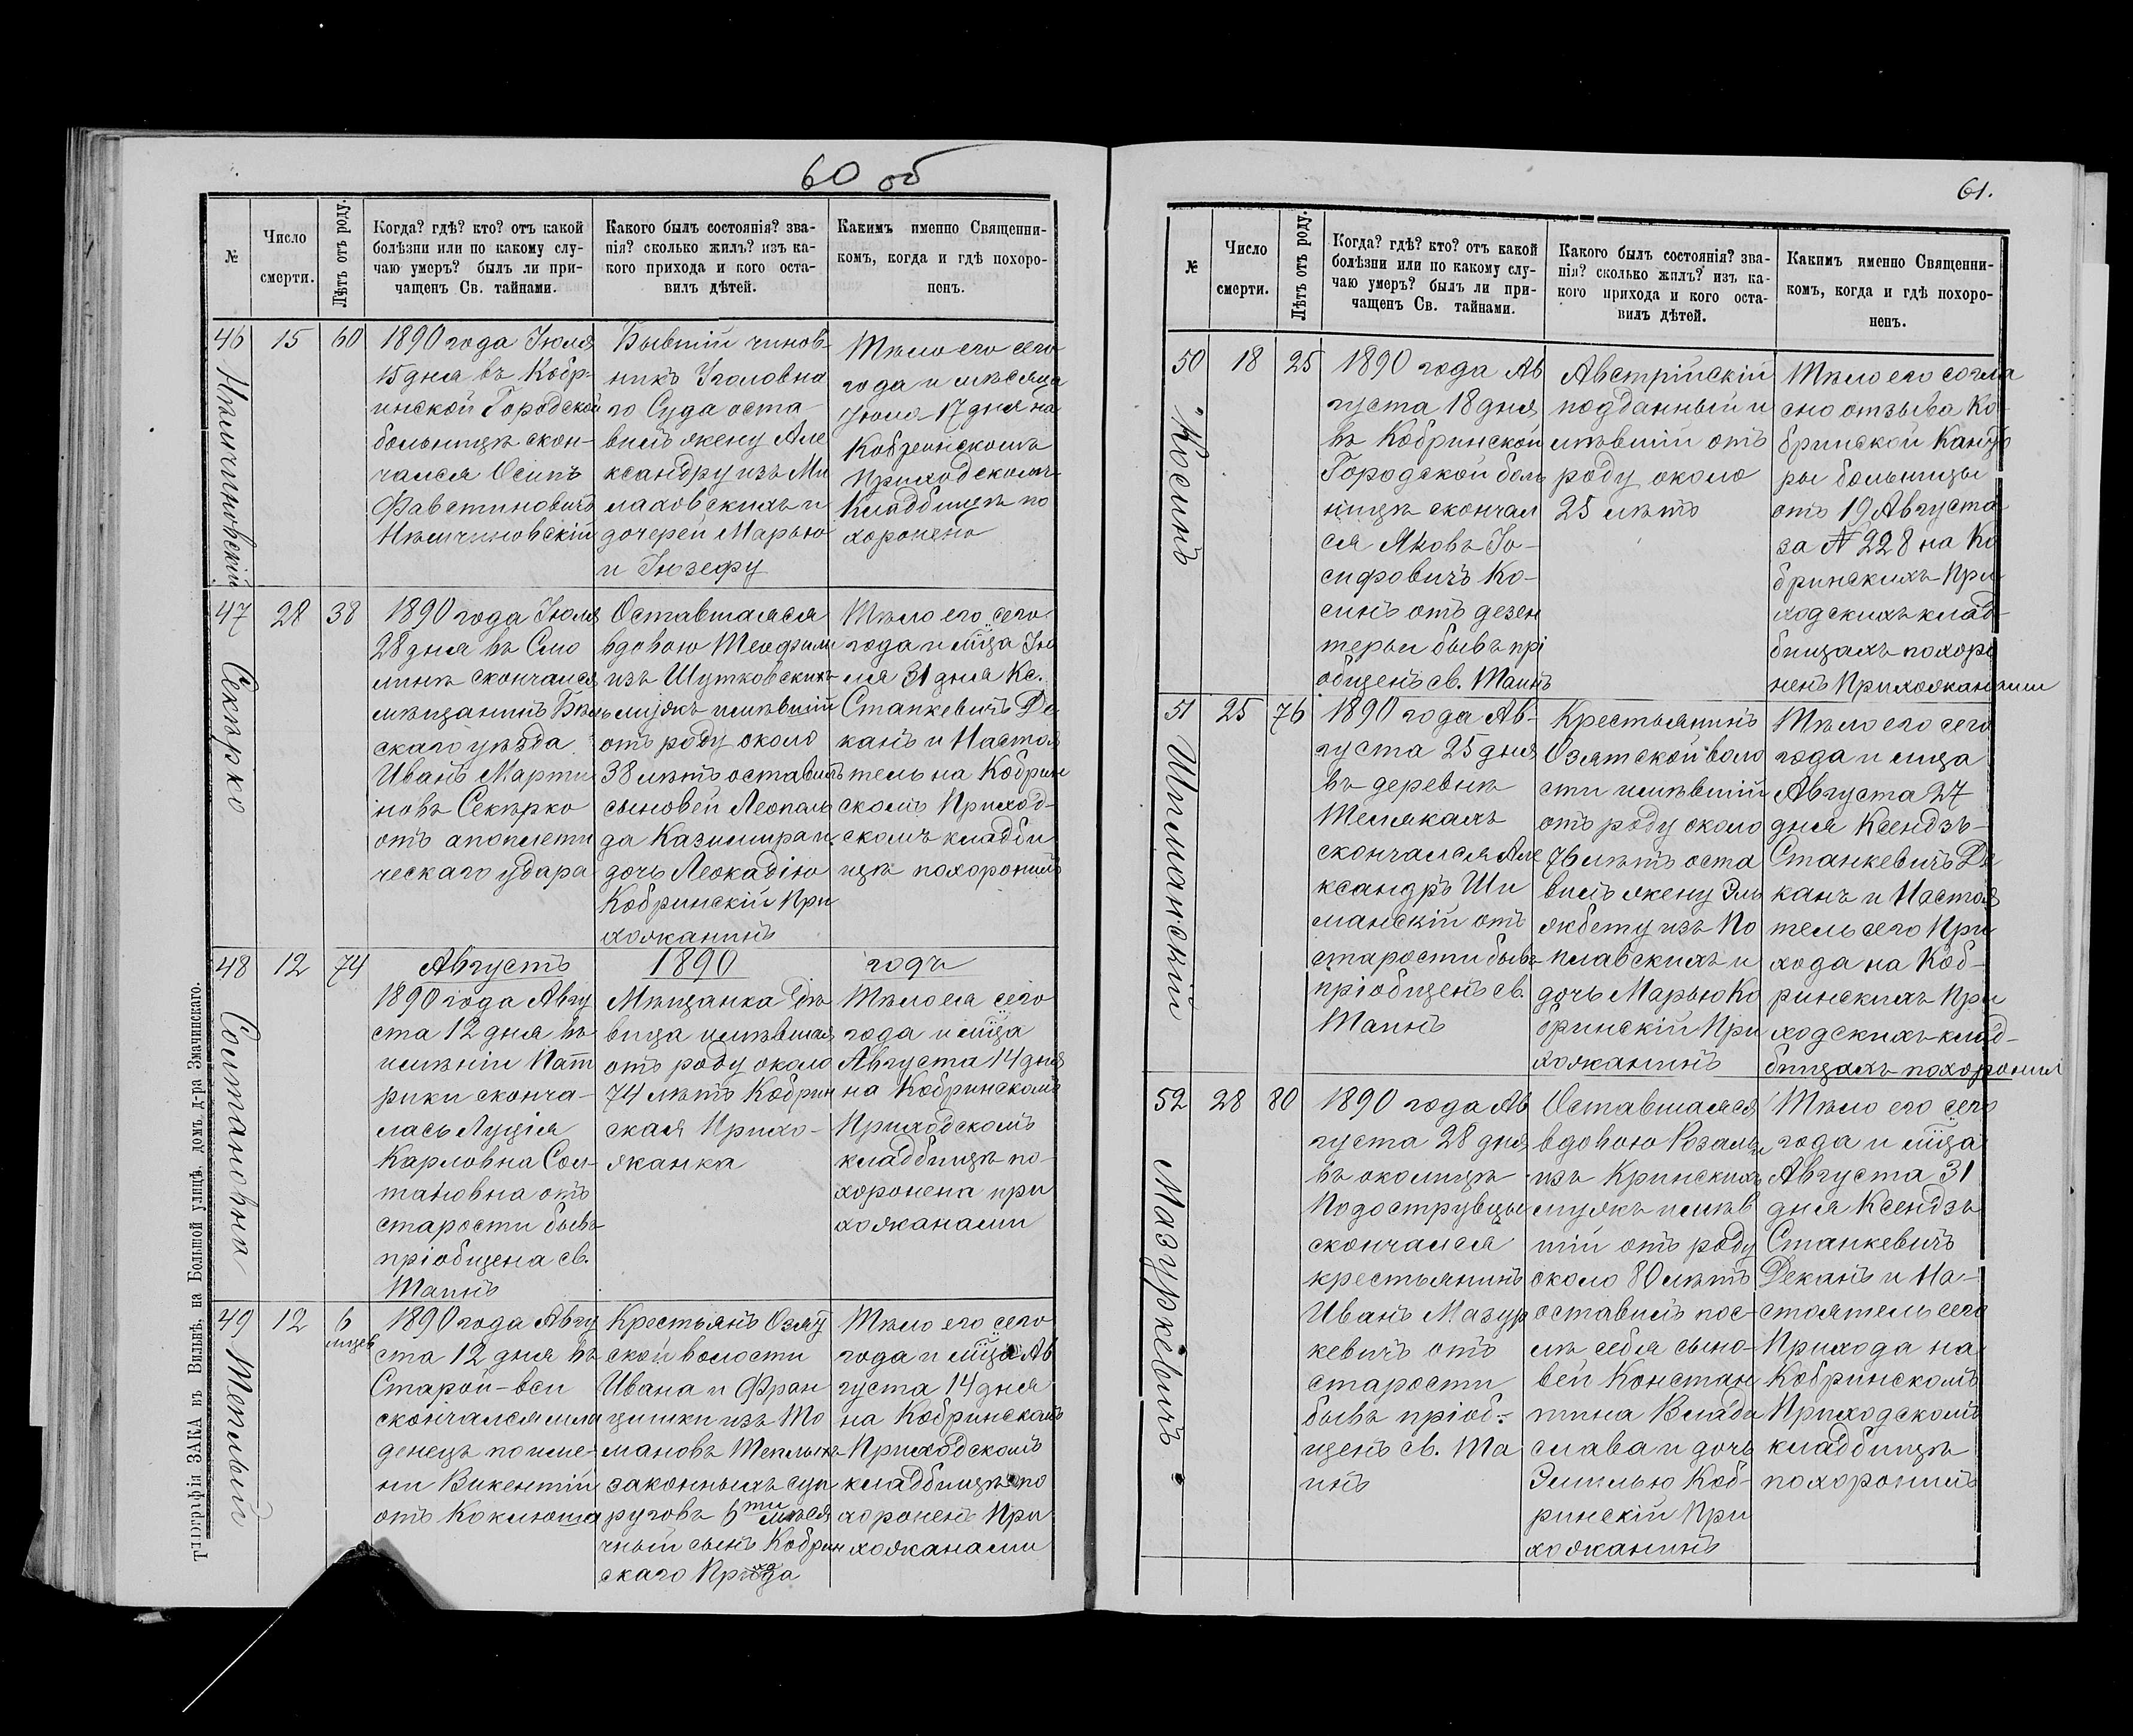 60 об
№
Число
смерти.
Лѣтъ отъ роду.
Когда? гдѣ? кто? отъ какой
болѣзни или по какому слу-
чаю умеръ? былъ ли при-
чащенъ Св. тайнами.
Какого былъ состоянія? зва-
нія? сколько жилъ? изъ ка-
кого прихода и кого оста-
вилъ дѣтей.
Какимъ именно Священни-
комъ, когда и гдѣ похоро-
ненъ.
46
Нѣмчиновскій
15
60
1890 года Іюля
15 дня въ Кобр-
инской Городской
больницѣ скон-
чался Осипъ
Фавстиновичъ
Нѣмчиновскій
Бывшій чинов-
никъ Уголовна
го Суда оста-
вилъ жену Але
ксандру изъ Ма
лаховскихъ и
дочерей Марью
и Іюзефу
Тѣло его сего
года и мѣсяца
Іюля 17 дня на
Кобринскомъ
Приходскомъ
Кладбищѣ по
хоронено
47
Секѣрко
28
38
1890 года Іюля
28 дня въ Смо
скончался
мѣщанинъ Бѣль
скаго уѣзда
Иванъ Марти
новъ Секѣрко
отъ апоплети
ческаго удара
Оставшаяся
вдовою Теофили
изъ Шутковскихъ
мужъ имѣвшій
отъ роду около
38 лѣтъ оставилъ
сыновей Леополь
да Казимира и
дочь Леокадію
Кобринскій При
хожанинъ
Тѣло его сего
года и мѣца Ію
ля 31 дня Кс.
Станкевичъ Де
канъ и Настоя
тель на Кобрин
скомъ Приход-
скомъ кладби
щѣ похоронилъ
Августъ 1890 годъ
48
Солтановна
12
74
1890 года Авгу
ста 12 дня въ
имѣніи Пат
рики сконча-
лась Луція
Карловна Сол-
тановна отъ
старости бывъ
пріобщена св.
Таинъ
Мѣщанка Дѣ
вица имѣвшая
отъ роду около
74 лѣтъ Кобрин
ская Прихо-
жанка
Тѣло ея сего
года и мѣца
Августа 14 дня
на Кобринскомъ
Приходскомъ
кладбищѣ по-
хоронена при
хожанами
49
Теплый
12
6
мцев
1890 года Авгу
ста 12 дня въ
Старой-вси
скончался мла
денецъ по име-
ни Викентій
отъ Коклюша
Крестьянъ Озят
ской волости
Ивана и Фран
цишки изъ То
мановъ Теплыхъ
законныхъ суп
руговъ 6ти мѣся
чный сынъ Кобрин
скаго Прихода
Тѣло его сего
года и мѣца Ав
густа 14 дня
на Кобринскомъ
Приходскомъ
кладбищѣ по
хороненъ При
хожанами
въ Вильнѣ, на Большой улицѣ, домъ д-ра Змачинскаго.
61.
№
Число
смерти.
Лѣтъ отъ роду.
Когда? гдѣ? кто? отъ какой
болѣзни или по какому слу-
чаю умеръ? былъ ли при-
чащенъ Св. тайнами.
Какого былъ состоянія? зва-
нія? сколько жилъ? изъ ка-
кого прихода и кого оста-
вилъ дѣтей.
Какимъ именно Священни-
комъ, когда и гдѣ похоро-
ненъ.
50
Косинъ
18
25
1890 года Ав
густа 18 дня
въ Кобринской
Городской боль
ницѣ скончал
ся Яковъ Іо-
сифовичъ Ко-
синъ отъ дезен
теріи бывъ прі
общенъ св. Таинъ
Австрійскій
подданный и
мѣвшій отъ
роду около
25 лѣтъ
Тѣло его согла
сно отзыва Ко-
бринской Канцо
ры больницы
отъ 19 Августа
за № 228 на Ко
бринскихъ При
ходскихъ клад-
бищахъ похоро
ненъ Прихожанами
51
Шиманскій
25
76
1890 года Ав-
густа 25 дня
въ деревнѣ
скончался Але
ксандръ Ши
манскій отъ
старости бывъ
пріобщенъ св.
Таинъ
Крестьянинъ
Озятской воло
сти имѣвшій
отъ роду около
76 лѣтъ оста
вилъ жену Эль
жбету изъ По
плавскихъ и
дочь Марью Ко
бринскій При
хожанинъ
Тѣло его сего
года и мца
Августа 27
дня Ксендзъ
Станкевичъ Де
канъ и Настоя
тель сего При
хода на Коб-
ринскихъ При
ходскихъ клад-
бищахъ похоронил
52
Мазуркевичъ
28
80
1890 года Ав
густа 28 дня
въ околицѣ
Подострувцы
скончался
крестьянинъ
Иванъ Мазур
кевичъ отъ
старости
бывъ пріоб-
щенъ св. Та
инъ
Оставшаяся
вдовою Розалья
изъ Кринскихъ
мужъ имѣв
шій отъ роду
около 80 лѣтъ
оставилъ пос-
лѣ себя сыно-
вей Констан
тина Влади
слава и дочь
Эмилью Коб-
ринскій При
хожанинъ
Тѣло его сего
года и мѣца
Августа 31
дня Ксендзъ
Станкевичъ
Деканъ и На-
стоятель сего
Прихода на
Кобринскомъ
Приходскомъ
кладбищѣ
похоронилъ